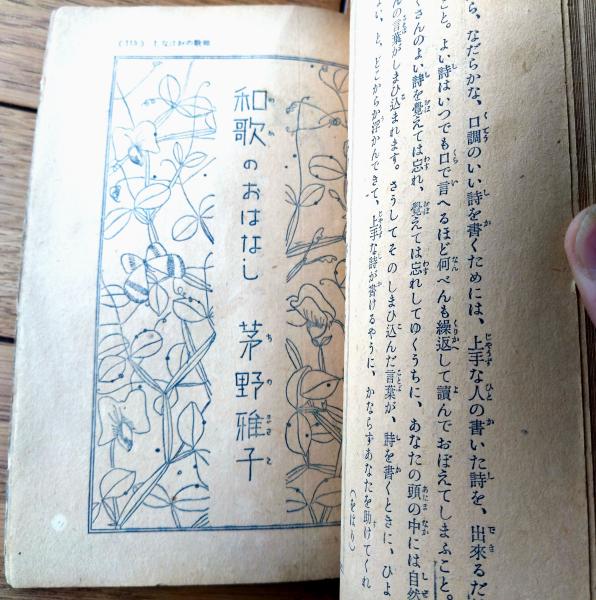 ら、なだらかな、口調のいい詩を書くためには、上手な人の書いた詩を、出來るだ
こと。よい詩はいつでも口で言へるほど何べんも繰返して讀んでおぼえてしまふこと。
くさんのよい詩を覺えては忘れ、覺えては忘れしてゆくうちに、あなたの頭の中には自然
んの言葉がしまひ込まれます。さうしてそのしまひ込んだ言葉が、詩を書くときに、ひよ
よい、と、どこからか浮かんできて、上手な詩が書けるやうに、かならずあなたを助けてくれ
(をはり)
和歌のおはなし 茅野雅子